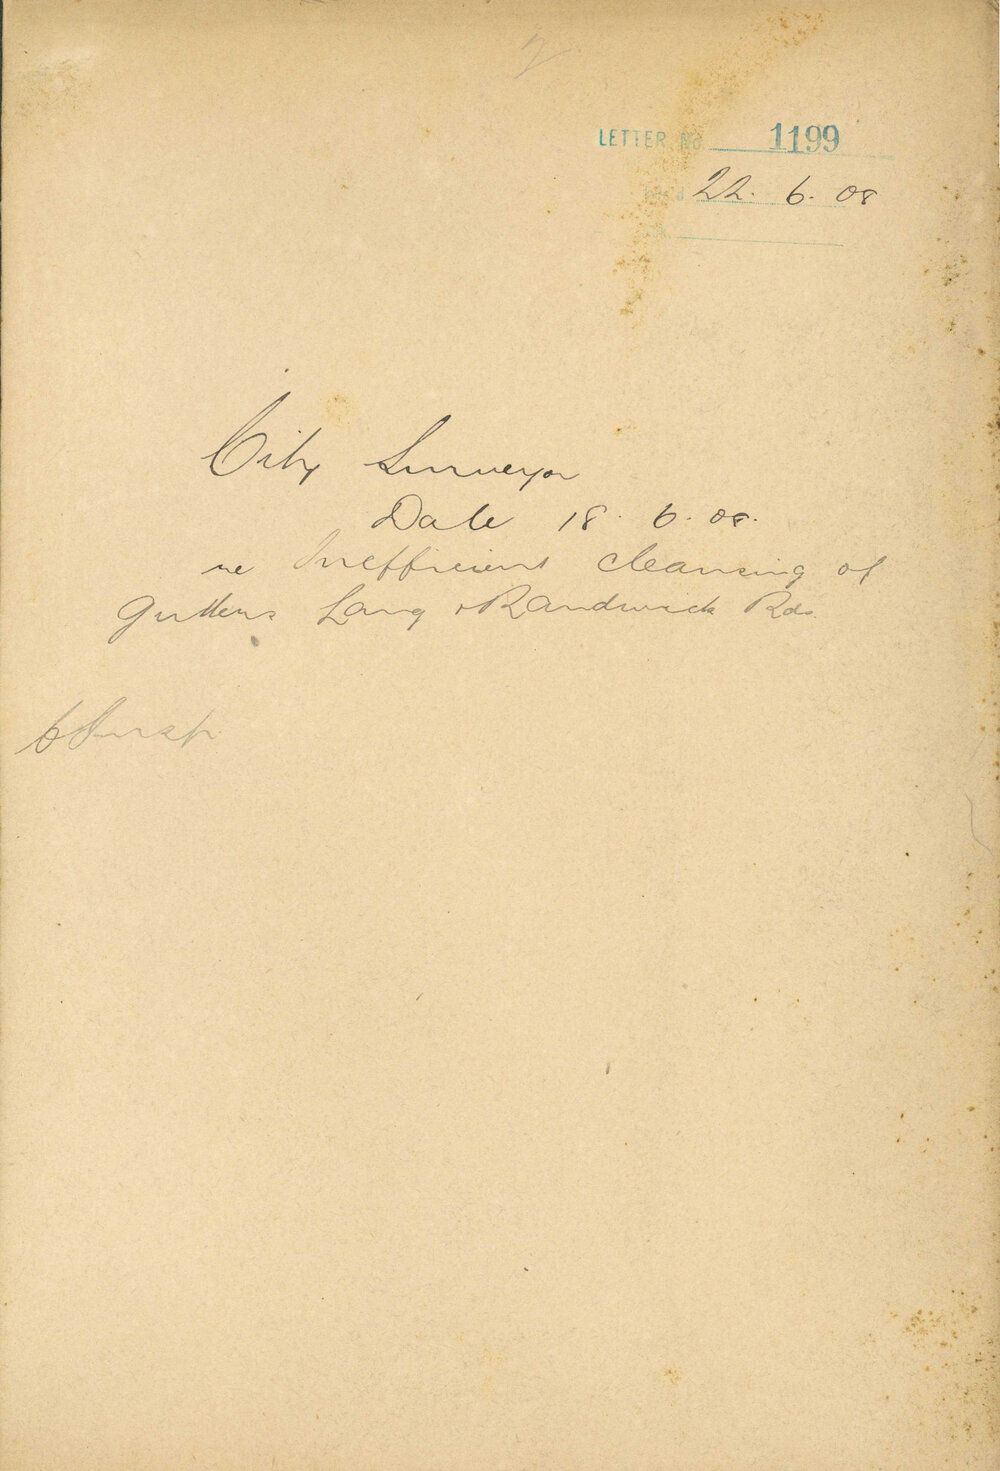 LETTER No 1199
Rec'd 22. 6. 08
City Surveyor
Date 18. 6. 08.
re Inefficient cleansing of
gutters Lang & Randwick Rds